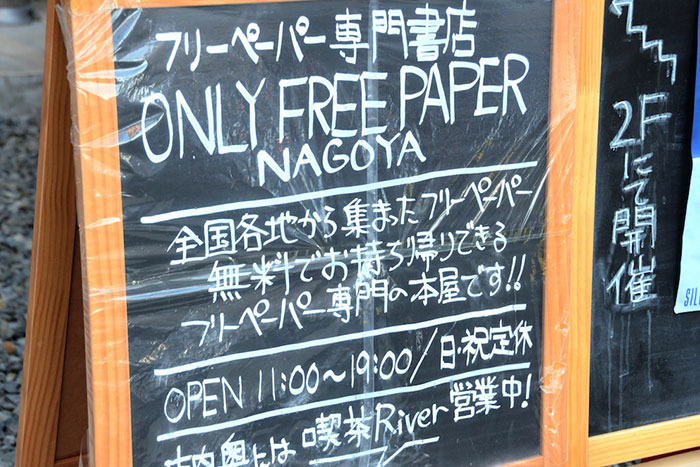 フリーペーパー専門書店
ONLY FREE PAPER
NAGOYA
全国各地から集まったフリーペーパー
無料でお持ち帰りできる
フリーペーパー専門の本屋です!!
OPEN 11:00〜19:00/日・祝定休
内奥には 喫茶River営業中!
2Fにて開催
SIL